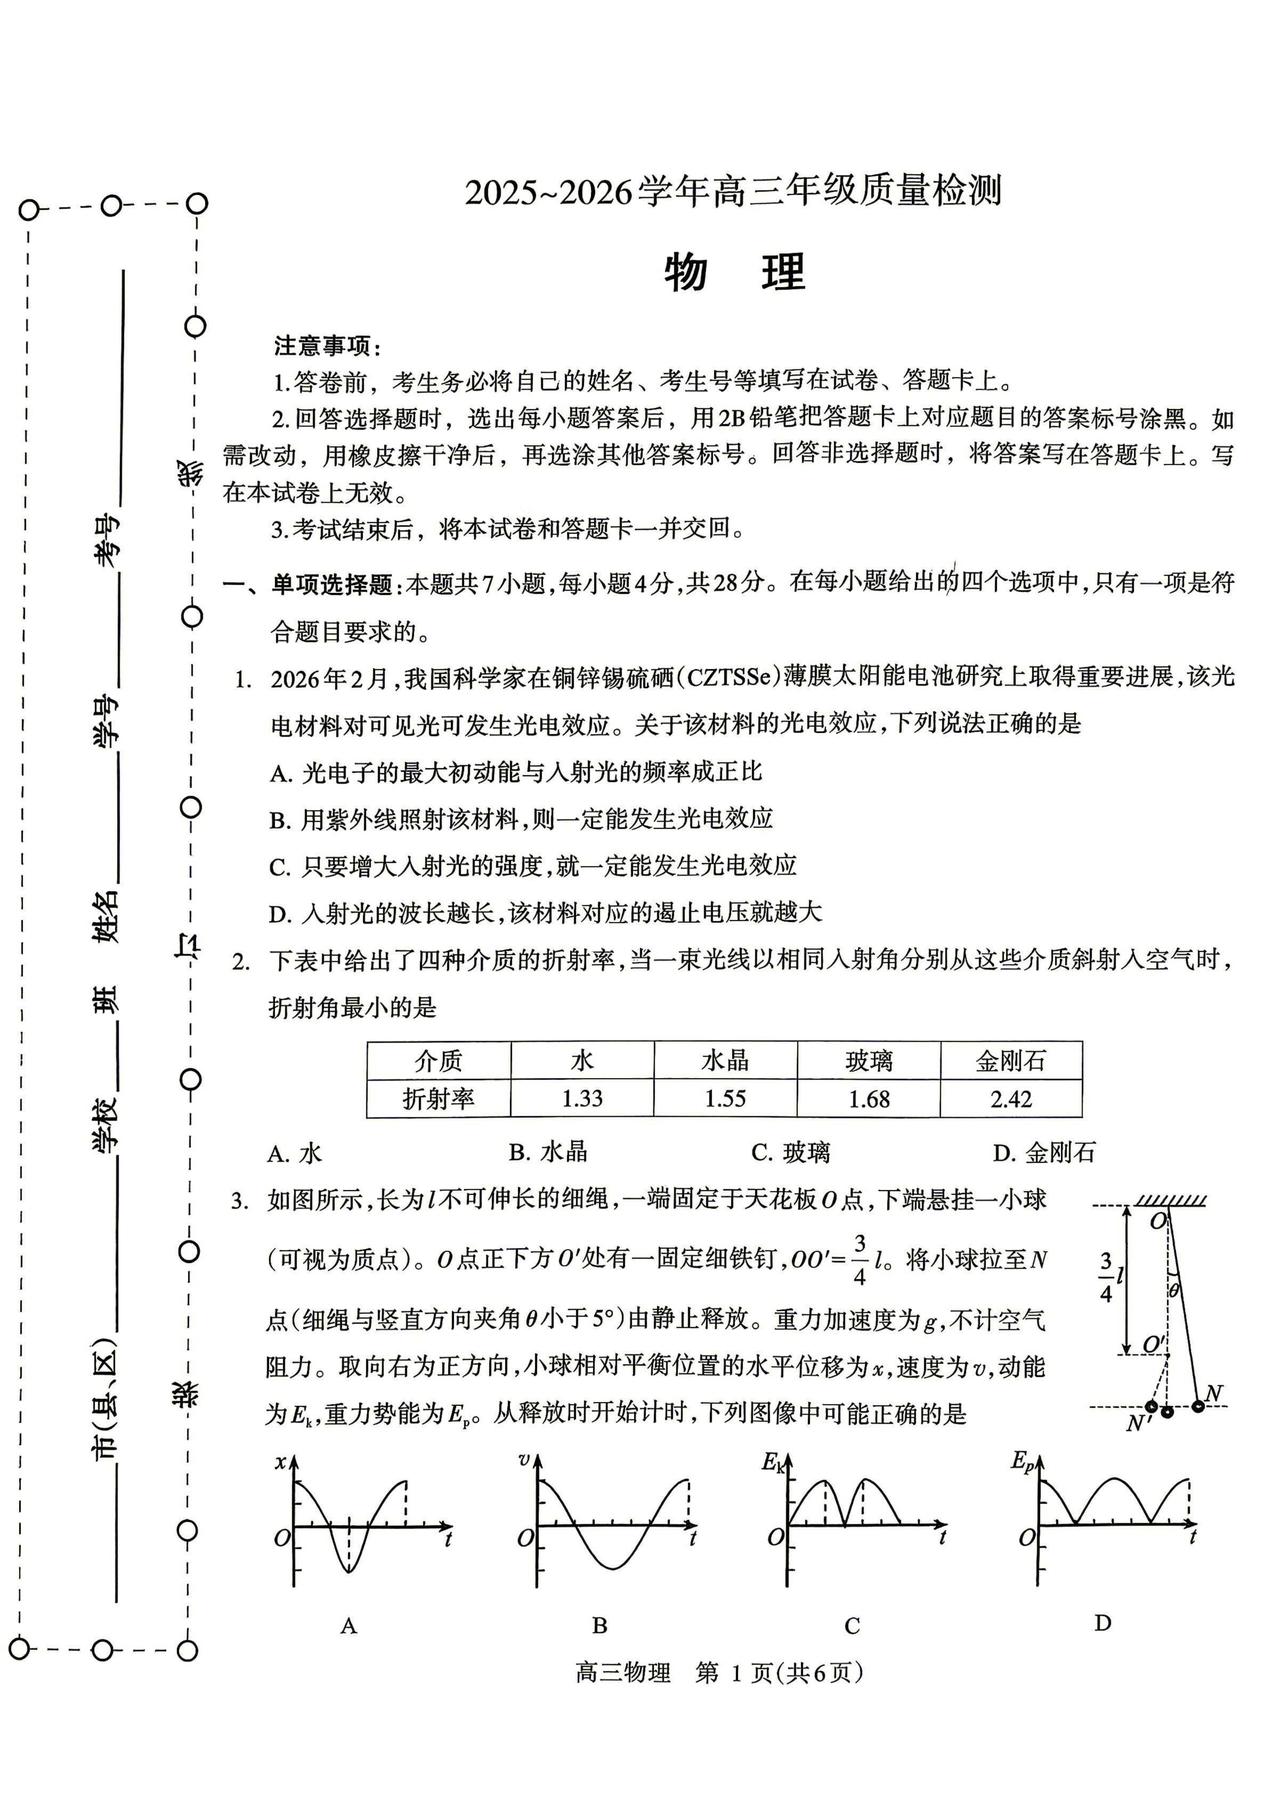 2025~2026学年高三年级质量检测
物 理
注意事项：
1.答卷前，考生务必将自己的姓名、考生号等填写在试卷、答题卡上。
2.回答选择题时，选出每小题答案后，用2B铅笔把答题卡上对应题目的答案标号涂黑。如
需改动，用橡皮擦干净后，再选涂其他答案标号。回答非选择题时，将答案写在答题卡上。写
在本试卷上无效。
3.考试结束后，将本试卷和答题卡一并交回。
一、单项选择题：本题共7小题，每小题4分，共28分。在每小题给出的四个选项中，只有一项是符
合题目要求的。
1. 2026年2月，我国科学家在铜锌锡硫硒(CZTSSe)薄膜太阳能电池研究上取得重要进展，该光
电材料对可见光可发生光电效应。关于该材料的光电效应，下列说法正确的是
A. 光电子的最大初动能与入射光的频率成正比
B. 用紫外线照射该材料，则一定能发生光电效应
C. 只要增大入射光的强度，就一定能发生光电效应
D. 入射光的波长越长，该材料对应的遏止电压就越大
2. 下表中给出了四种介质的折射率，当一束光线以相同入射角分别从这些介质斜射入空气时，
折射角最小的是
介质 水 水晶 玻璃 金刚石
折射率 1.33 1.55 1.68 2.42
A. 水 B. 水晶 C. 玻璃 D. 金刚石
3. 如图所示，长为l不可伸长的细绳，一端固定于天花板O点，下端悬挂一小球
(可视为质点)。O点正下方O′处有一固定细铁钉，OO′=3/4 l。将小球拉至N
点(细绳与竖直方向夹角θ小于5°)由静止释放。重力加速度为g，不计空气
阻力。取向右为正方向，小球相对平衡位置的水平位移为x，速度为v，动能
为Ek，重力势能为Ep。从释放时开始计时，下列图像中可能正确的是
O
3/4 l
θ
O′
N
N′
x O t
v O t
Ek O t
Ep O t
A B C D
高三物理 第 1 页(共6页)
市(县、区) 学校 班 姓名 学号 考号
装 订 线